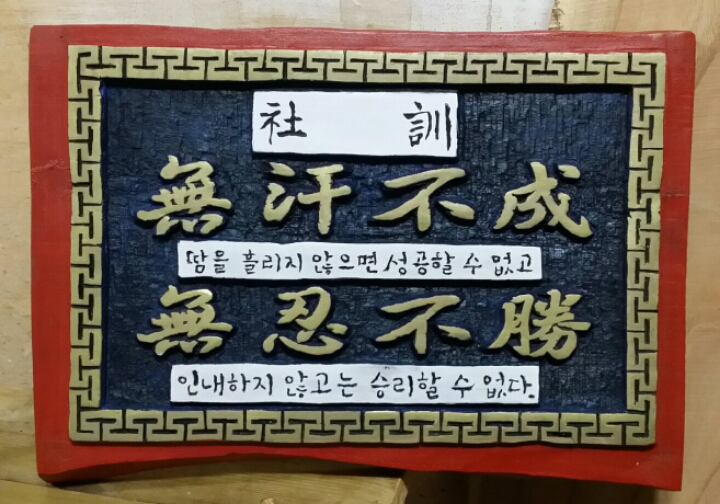 社 訓
無汗不成
땀을 흘리지 않으면 성공할 수 없고
無忍不勝
인내하지 않고는 승리할 수 없다.